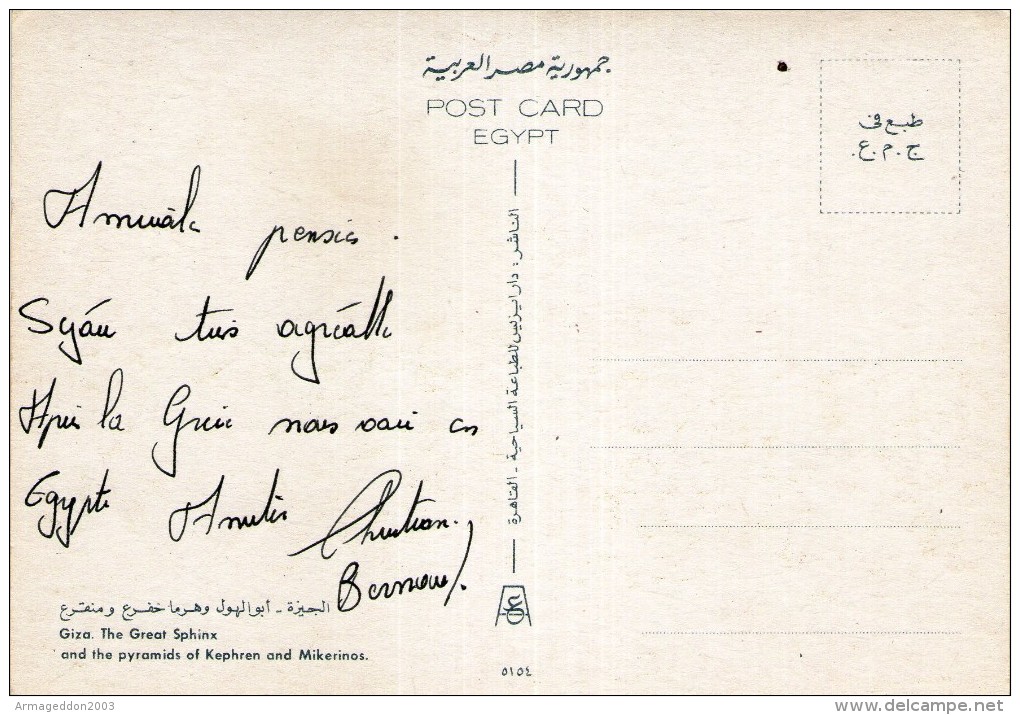 جمهورية مصر العربية
POST CARD
EGYPT
طبع فى
ج.م.ع.
Amicale pensée.
Séjour très agréable
Après la Grèce nous voici en
Egypte Amitiés Christian.
الناشر: دار ايزيس للطباعة السياحية - القاهرة
الجيزة - أبو الهول وهرما خفرع ومنقرع
Giza. The Great Sphinx
and the pyramids of Kephren and Mikerinos.
٥١٥٤
Armageddon2003
delcampe.net